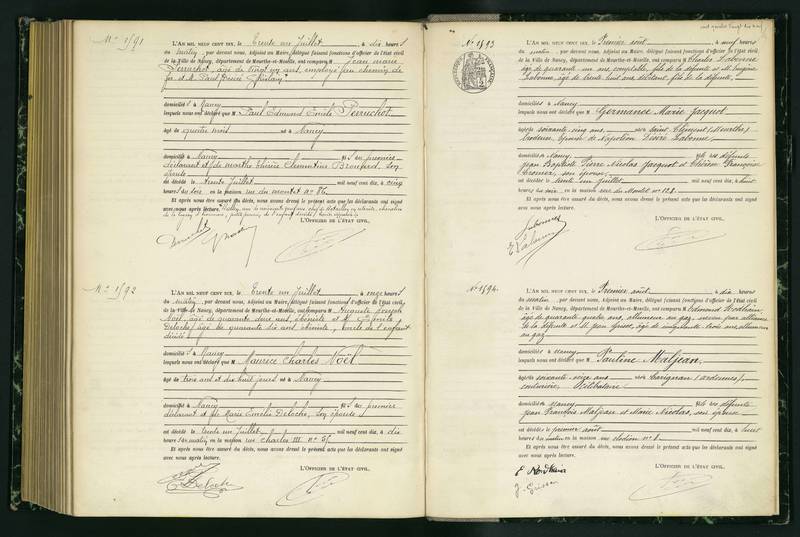 N° 1591
L'AN MIL NEUF CENT DIX, le Trente un Juillet, à dix heures
du matin, par devant nous, Adjoint au Maire, délégué faisant fonctions d'officier de l'état civil
de la Ville de Nancy, département de Meurthe-et-Moselle, ont comparu M Jean Marie
Perruchot, âgé de vingt un ans, employé au chemin de
fer et M. Paul
domicilié à Nancy
lesquels nous ont déclaré que M Paul Edmond Emile Perruchot
âgé de quatre mois né à Nancy
domicilié à Nancy fils du premier
déclarant et de Marthe Clémentine son
épouse
est décédé le trente Juillet mil neuf cent dix, à cinq
heures du soir, en la maison rue du Montet n° 86
Et après nous être assuré du décès, nous avons dressé le présent acte que les déclarants ont signé
avec nous après lecture.
L'OFFICIER DE L'ÉTAT CIVIL,
N° 1592
L'AN MIL NEUF CENT DIX, le Trente un Juillet, à onze heures
du matin, par devant nous, Adjoint au Maire, délégué faisant fonctions d'officier de l'état civil
de la Ville de Nancy, département de Meurthe-et-Moselle, ont comparu M Auguste Joseph
Noël, âgé de quarante deux ans, ébéniste et M.
Deloche, âgé de quarante dix ans ébéniste, oncle de l'enfant
décédé
domicilié à Nancy
lesquels nous ont déclaré que M Maurice Charles Noël
âgé de trois ans et dix huit jours né à Nancy
domicilié à Nancy fils du premier
déclarant et de Marie Emélie Deloche, son épouse
est décédé le trente un Juillet mil neuf cent dix, à dix
heures du matin, en la maison rue Charles III n° 51
Et après nous être assuré du décès, nous avons dressé le présent acte que les déclarants ont signé
avec nous après lecture.
L'OFFICIER DE L'ÉTAT CIVIL,
E Deloche
N° 1593
L'AN MIL NEUF CENT DIX, le Premier août, à neuf heures
du matin, par devant nous, Adjoint au Maire, délégué faisant fonctions d'officier de l'état civil
de la Ville de Nancy, département de Meurthe-et-Moselle, ont comparu M Charles Labonne
âgé de quarante un ans comptable, fils de la défunte et M. Eugène
Labonne, âgé de trente huit ans, débitant, fils de la défunte,
domiciliés à Nancy
lesquels nous ont déclaré que M Germance Marie Jacquot
âgée de soixante cinq ans, née à Saint Clément (Meurthe)
brodeuse, épouse de Napoléon Désiré Labonne
domiciliée à Nancy fille des défunts
Jean Baptiste Pierre Nicolas Jacquot et Thérèse Françoise
son épouse
est décédée le trente un Juillet mil neuf cent dix, à huit
heures du soir, en la maison rue du Montet n° 128
Et après nous être assuré du décès, nous avons dressé le présent acte que les déclarants ont signé
avec nous après lecture.
L'OFFICIER DE L'ÉTAT CIVIL,
Labonne
E Labonne
N° 1594
L'AN MIL NEUF CENT DIX, le Premier août, à dix heures
du matin, par devant nous, Adjoint au Maire, délégué faisant fonctions d'officier de l'état civil
de la Ville de Nancy, département de Meurthe-et-Moselle, ont comparu M Edmond
âgé de quarante quatre ans, allumeur au gaz, neveu par alliance
de la défunte et M. Jean âgé de cinquante trois ans, allumeur
au gaz
domiciliés à Nancy
lesquels nous ont déclaré que M Pauline Maljean
âgée de soixante-seize ans née à Carignan (Ardennes),
couturière, célibataire
domiciliée à Nancy fille des défunts
Jean François Maljean et Marie Nicolas, son épouse
est décédée le premier août mil neuf cent dix, à huit
heures du matin en la maison rue Clodion n° 8
Et après nous être assuré du décès, nous avons dressé le présent acte que les déclarants ont signé
avec nous après lecture.
L'OFFICIER DE L'ÉTAT CIVIL,